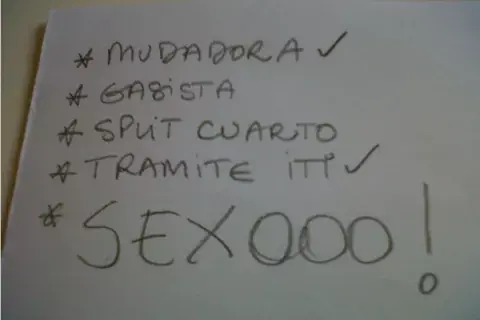 * MUDADORA ✓
* GASISTA
* SPLIT CUARTO
* TRAMITE ITI ✓
* SEXOOO!